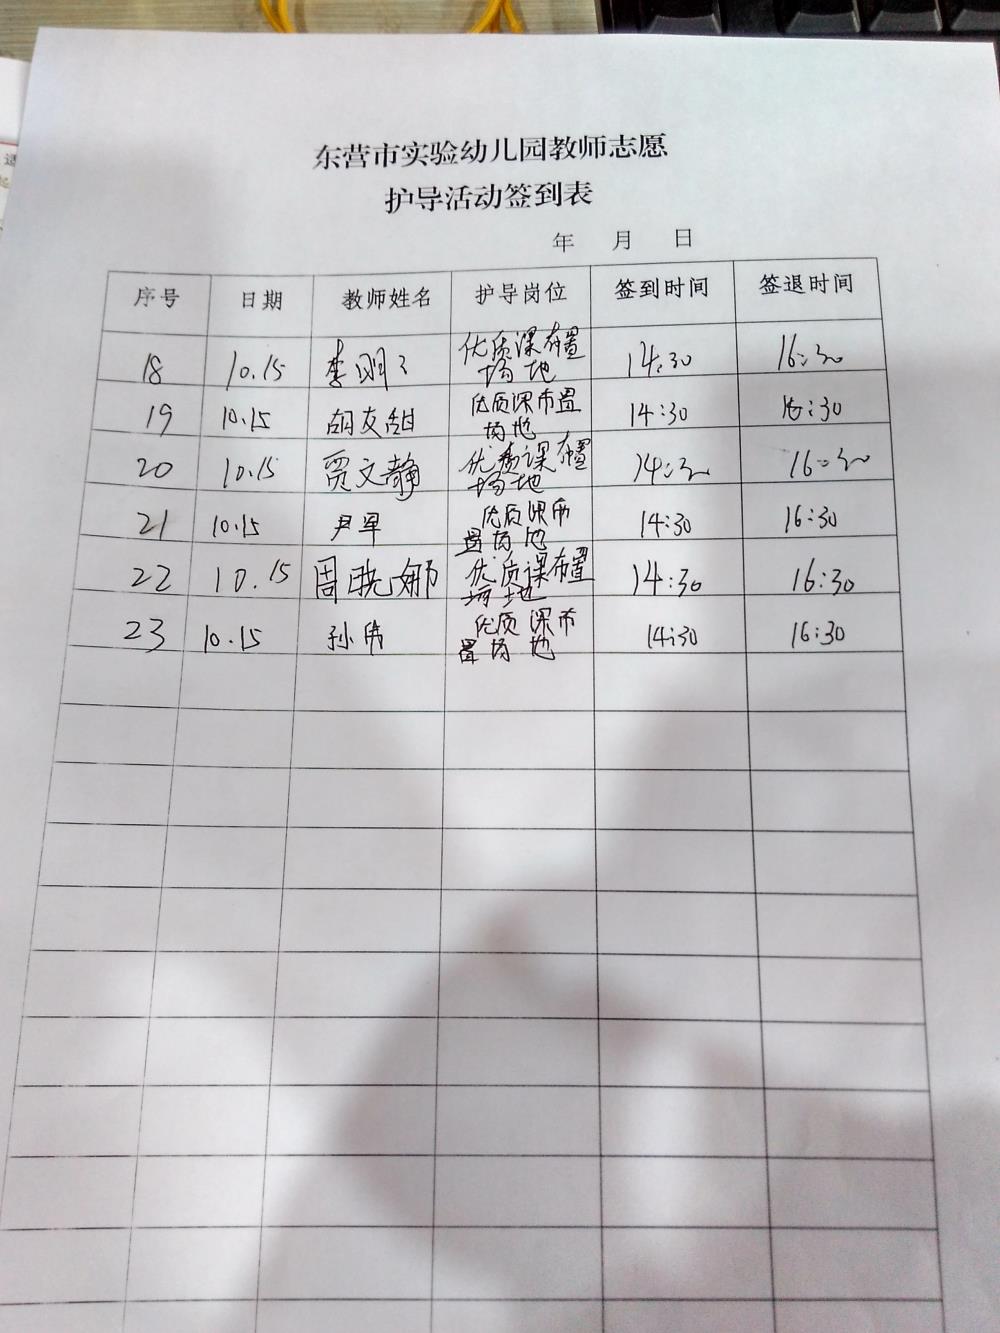 东营市实验幼儿园教师志愿
护导活动签到表
年 月 日
序号 日期 教师姓名 护导岗位 签到时间 签退时间
18 10.15 李明 优质课布置场地 14:30 16:30
19 10.15 胡友甜 优质课布置场地 14:30 16:30
20 10.15 贾文静 优质课布置场地 14:30 16:30
21 10.15 尹军 优质课布置场地 14:30 16:30
22 10.15 周晓娜 优质课布置场地 14:30 16:30
23 10.15 孙伟 优质课布置场地 14:30 16:30